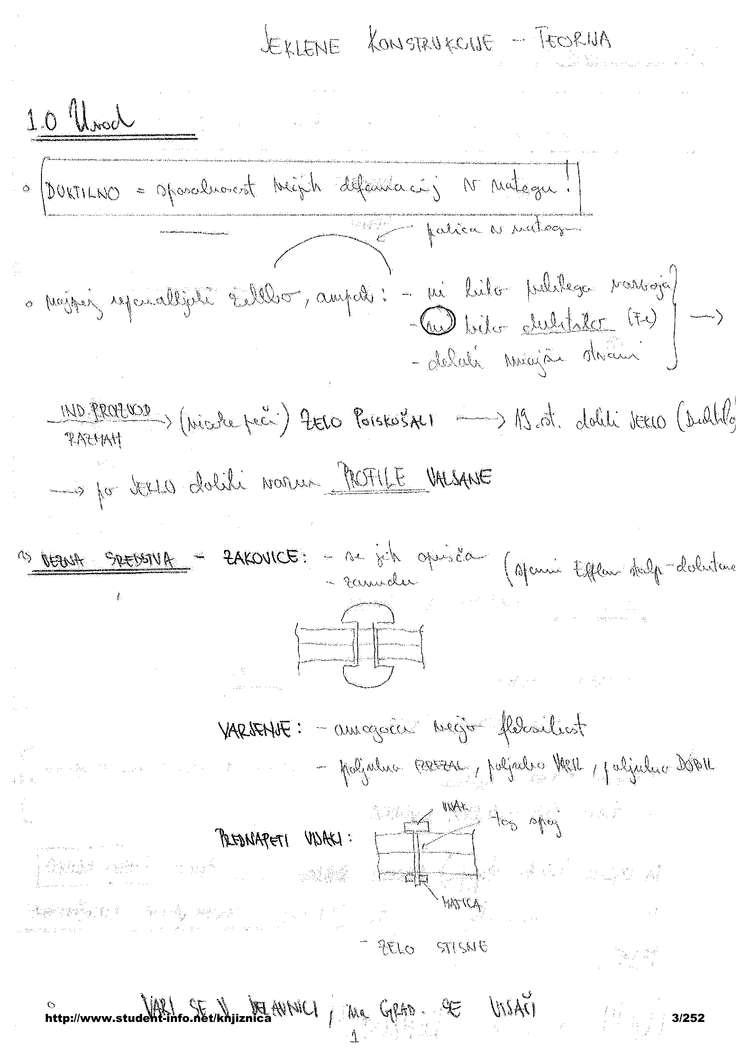 JEKLENE KONSTRUKCIJE - TEORIJA
1.0 Uvod
DUKTILNO = sposobnost večjih deformacij v nategu!
palica v nategu
najprej uporabljali železo, ampak: - ni bilo velikega razvoja
- ni bilo duktilno (Fe)
- delali manjše stvari
IND. PROIZVOD
RAZMAH
→ (visoke peči) ZELO POISKUŠALI → 19. st. dobili JEKLO
→ po JEKLO dobili PROFILE VALJANE
VEZNA SREDSTVA - ZAKOVICE: - se jih opušča
- zamuda
VARJENJE: - omogoča večjo fleksibilnost
- poljubno IZREZAL, poljubno VARIL, poljubno DOBIL
PREDNAPETI VIJAKI:
VIJAK
tog spoj
MATICA
- ZELO STISNE
VARI SE V DELAVNICI, na GRAD. SE VIJAČI
http://www.student-info.net/knjiznica
3/252
1